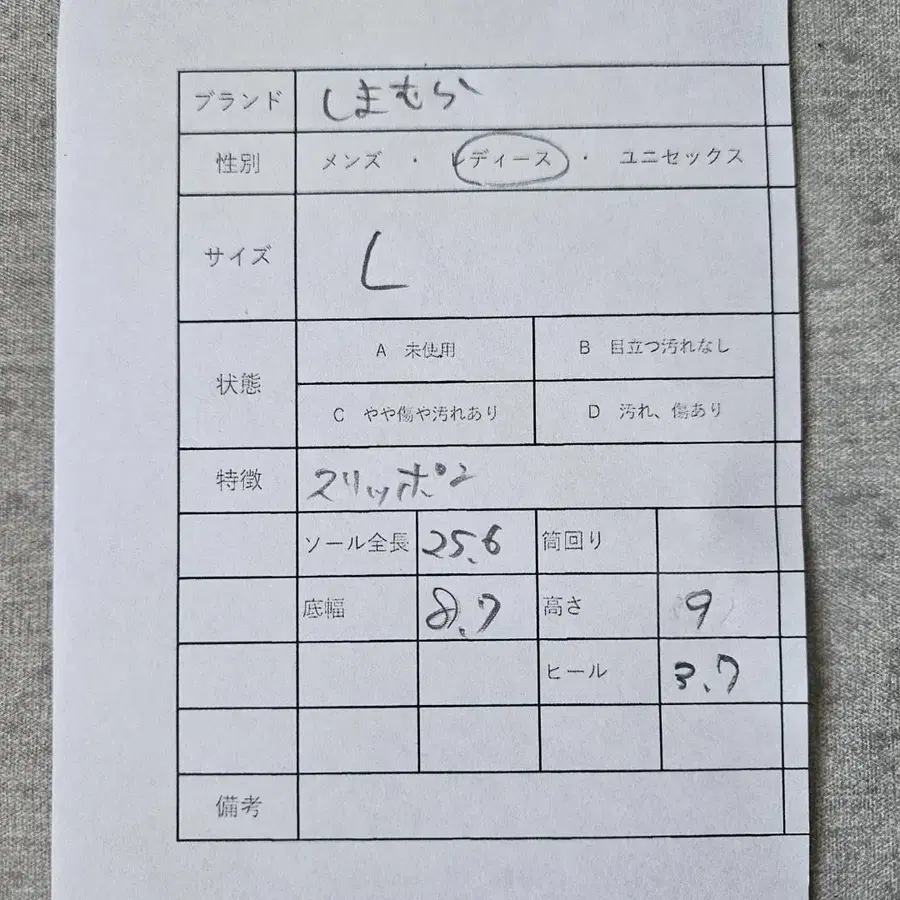 ブランド しまむら
性別 メンズ ・ レディース ・ ユニセックス
サイズ L
状態 A 未使用 B 目立つ汚れなし
C やや傷や汚れあり D 汚れ、傷あり
特徴 スリッポン
ソール全長 25.6 筒回り
底幅 8.7 高さ 9
ヒール 3.7
備考